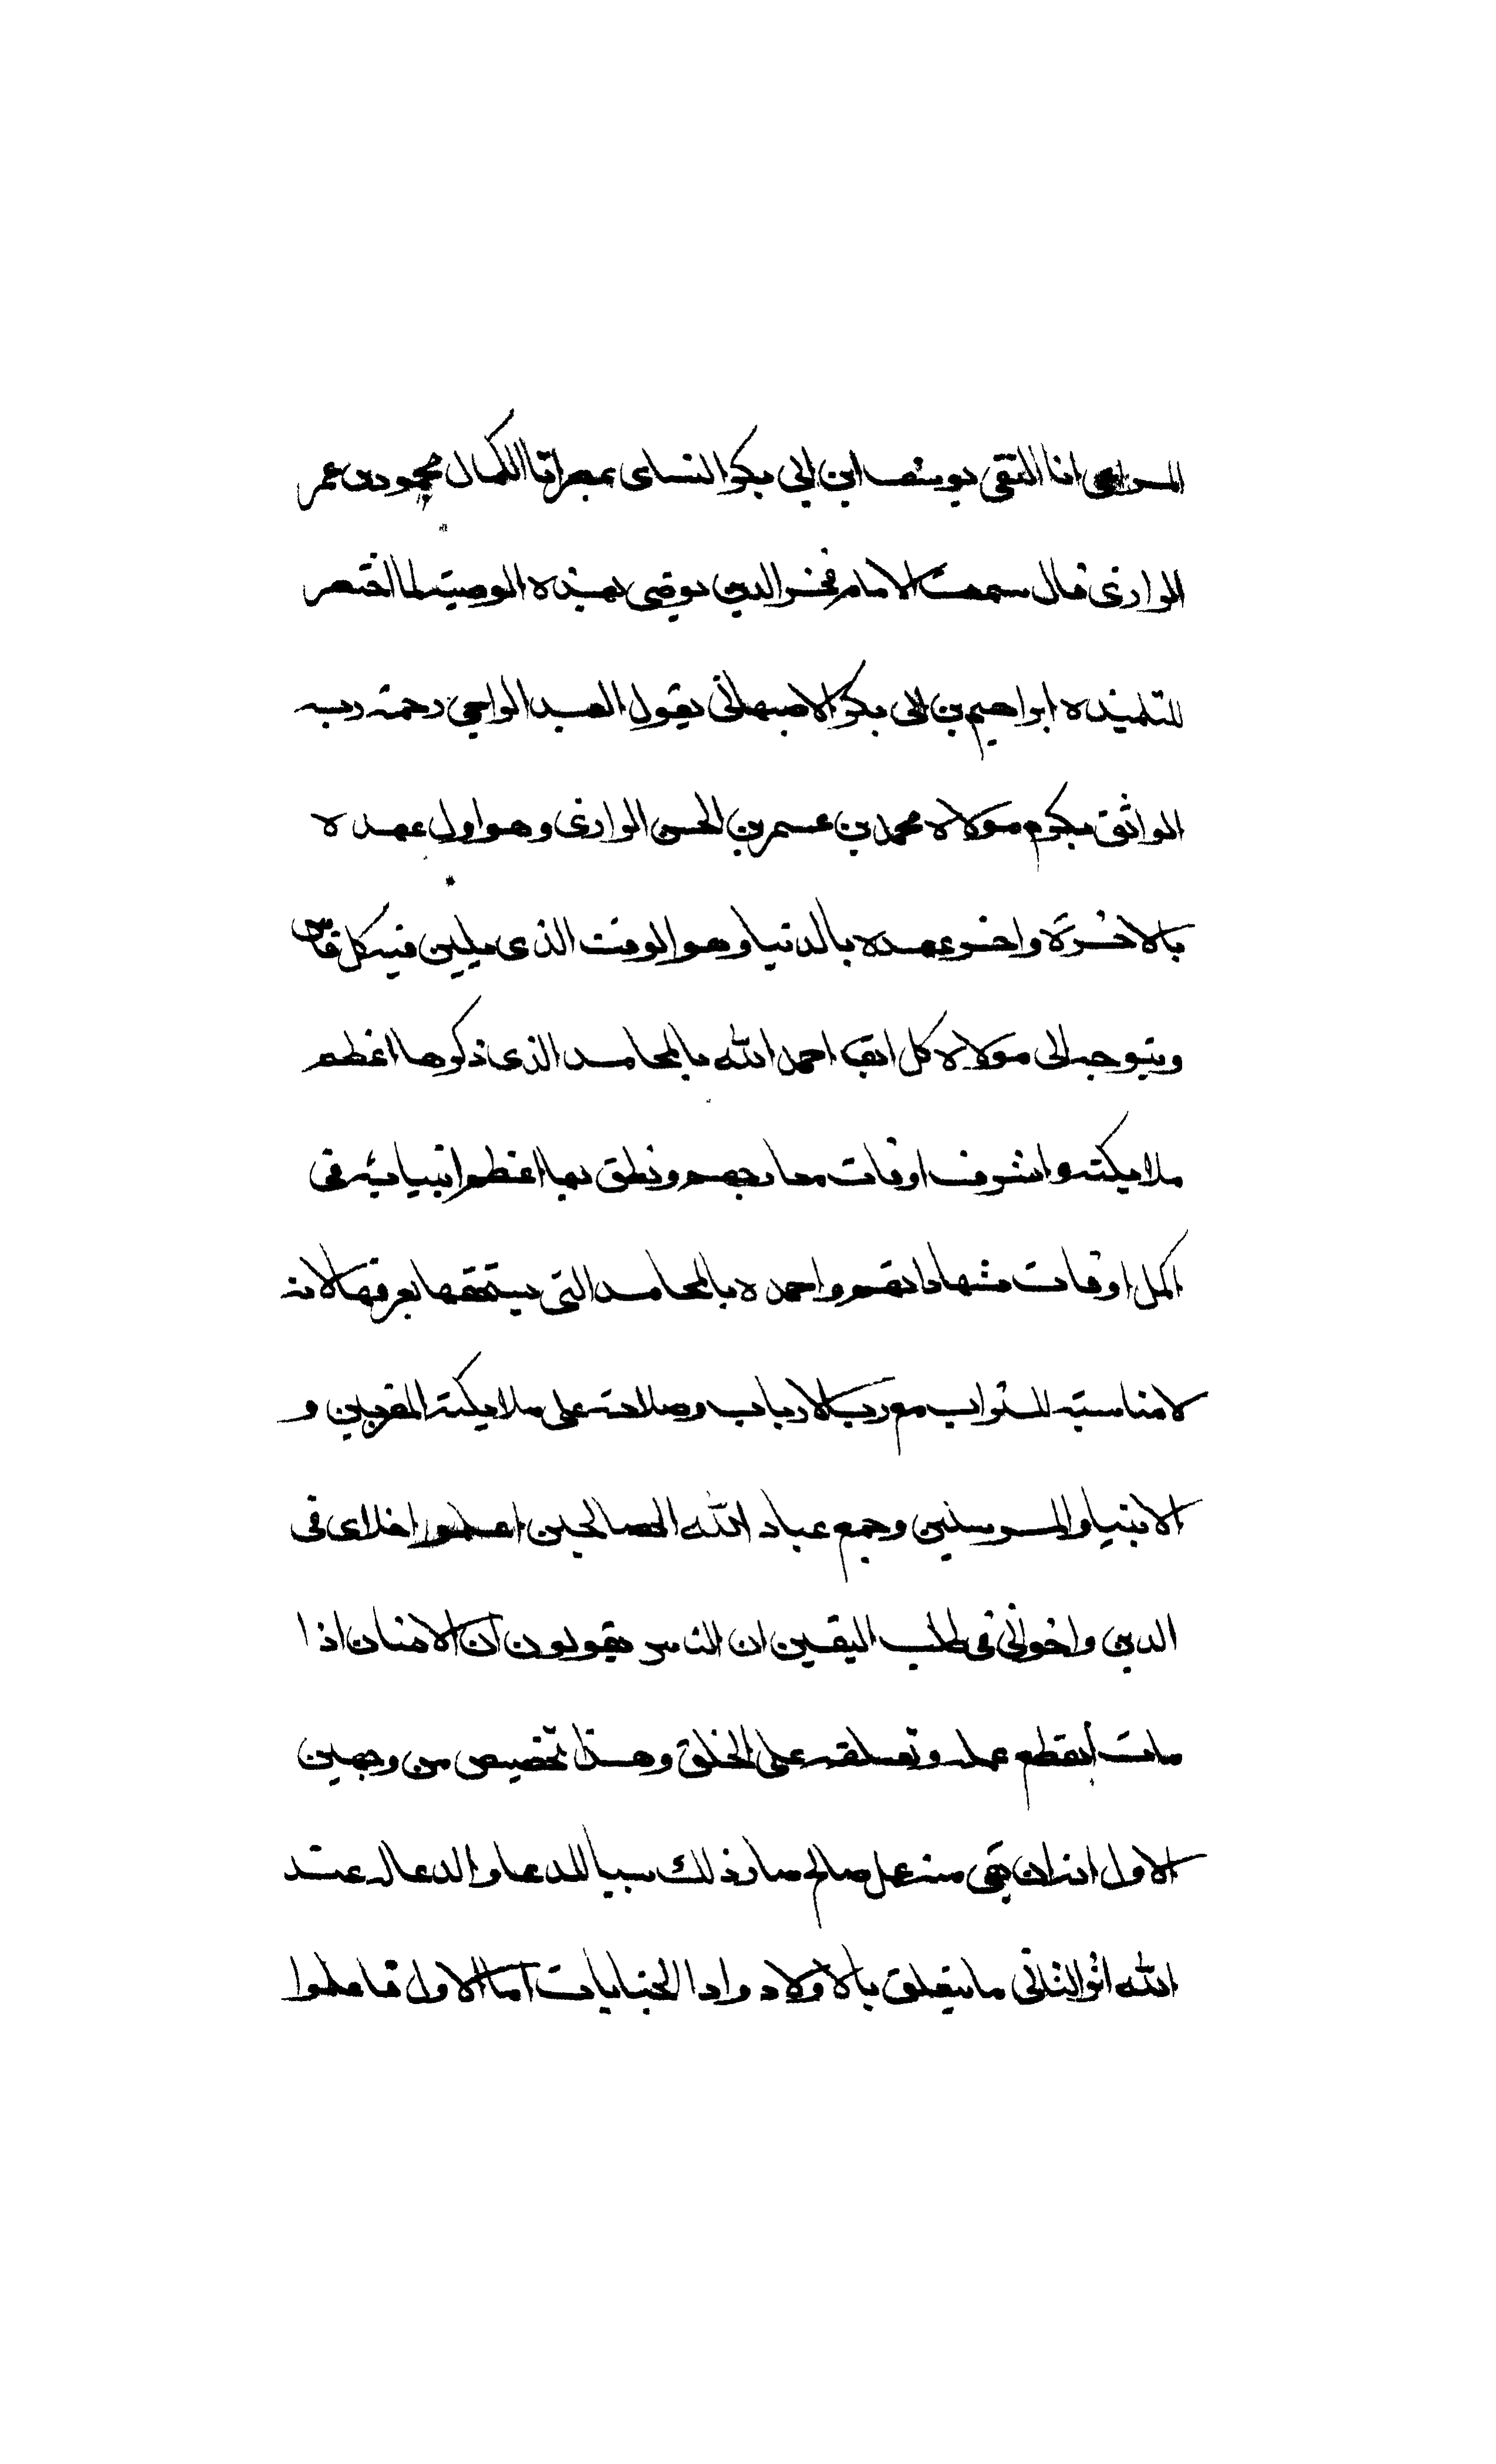 المراغى انا التقى يوسف ابن ابى بكر النساى بمصر انا الكمال محمود بن عمر
الرازى قال سمعت الامام فخر الدين يوصى بهذه الوصية لما احتضر
لتلميذه ابراهيم بن ابى بكر الاصبهانى يقول العبد الراجى رحمة ربه
الواثق بكرم مولاه محمد بن عمر بن الحسن الرازى وهو اول عهده
بالاخرة واخر عهده بالدنيا وهو الوقت الذى يلين فيه كل قاس
ويتوجه الى مولاه كل ابق احمد الله بالمحامد الذى ذكرها اعظم
ملايكته واشرف اوقات معارجهم ونطق بها اعظم انبيايه فى
اكمل اوقات شهاداتهم واحمده بالمحامد التى يستحقها بعرفها لانه
لا مناسبة للتراب مع رب الارباب وصلاته على ملايكته المقربين و
الانبيا والمرسلين وجمع عباد الله الصالحين اعلموا اخلاى فى
الدين واخوانى فى طلب اليقين ان الناس يقولون ان الانسان اذا
مات انقطع عمله وتعلقه على الخلق وهذا تخصيص من وجهين
الاول انه ان بقى منه عمل صالح صار ذلك سببا للدعا والدعا له عند
الله اثر الثانى ما يتعلق بالاولاد وادا الجنايات اما الاول فاعلموا